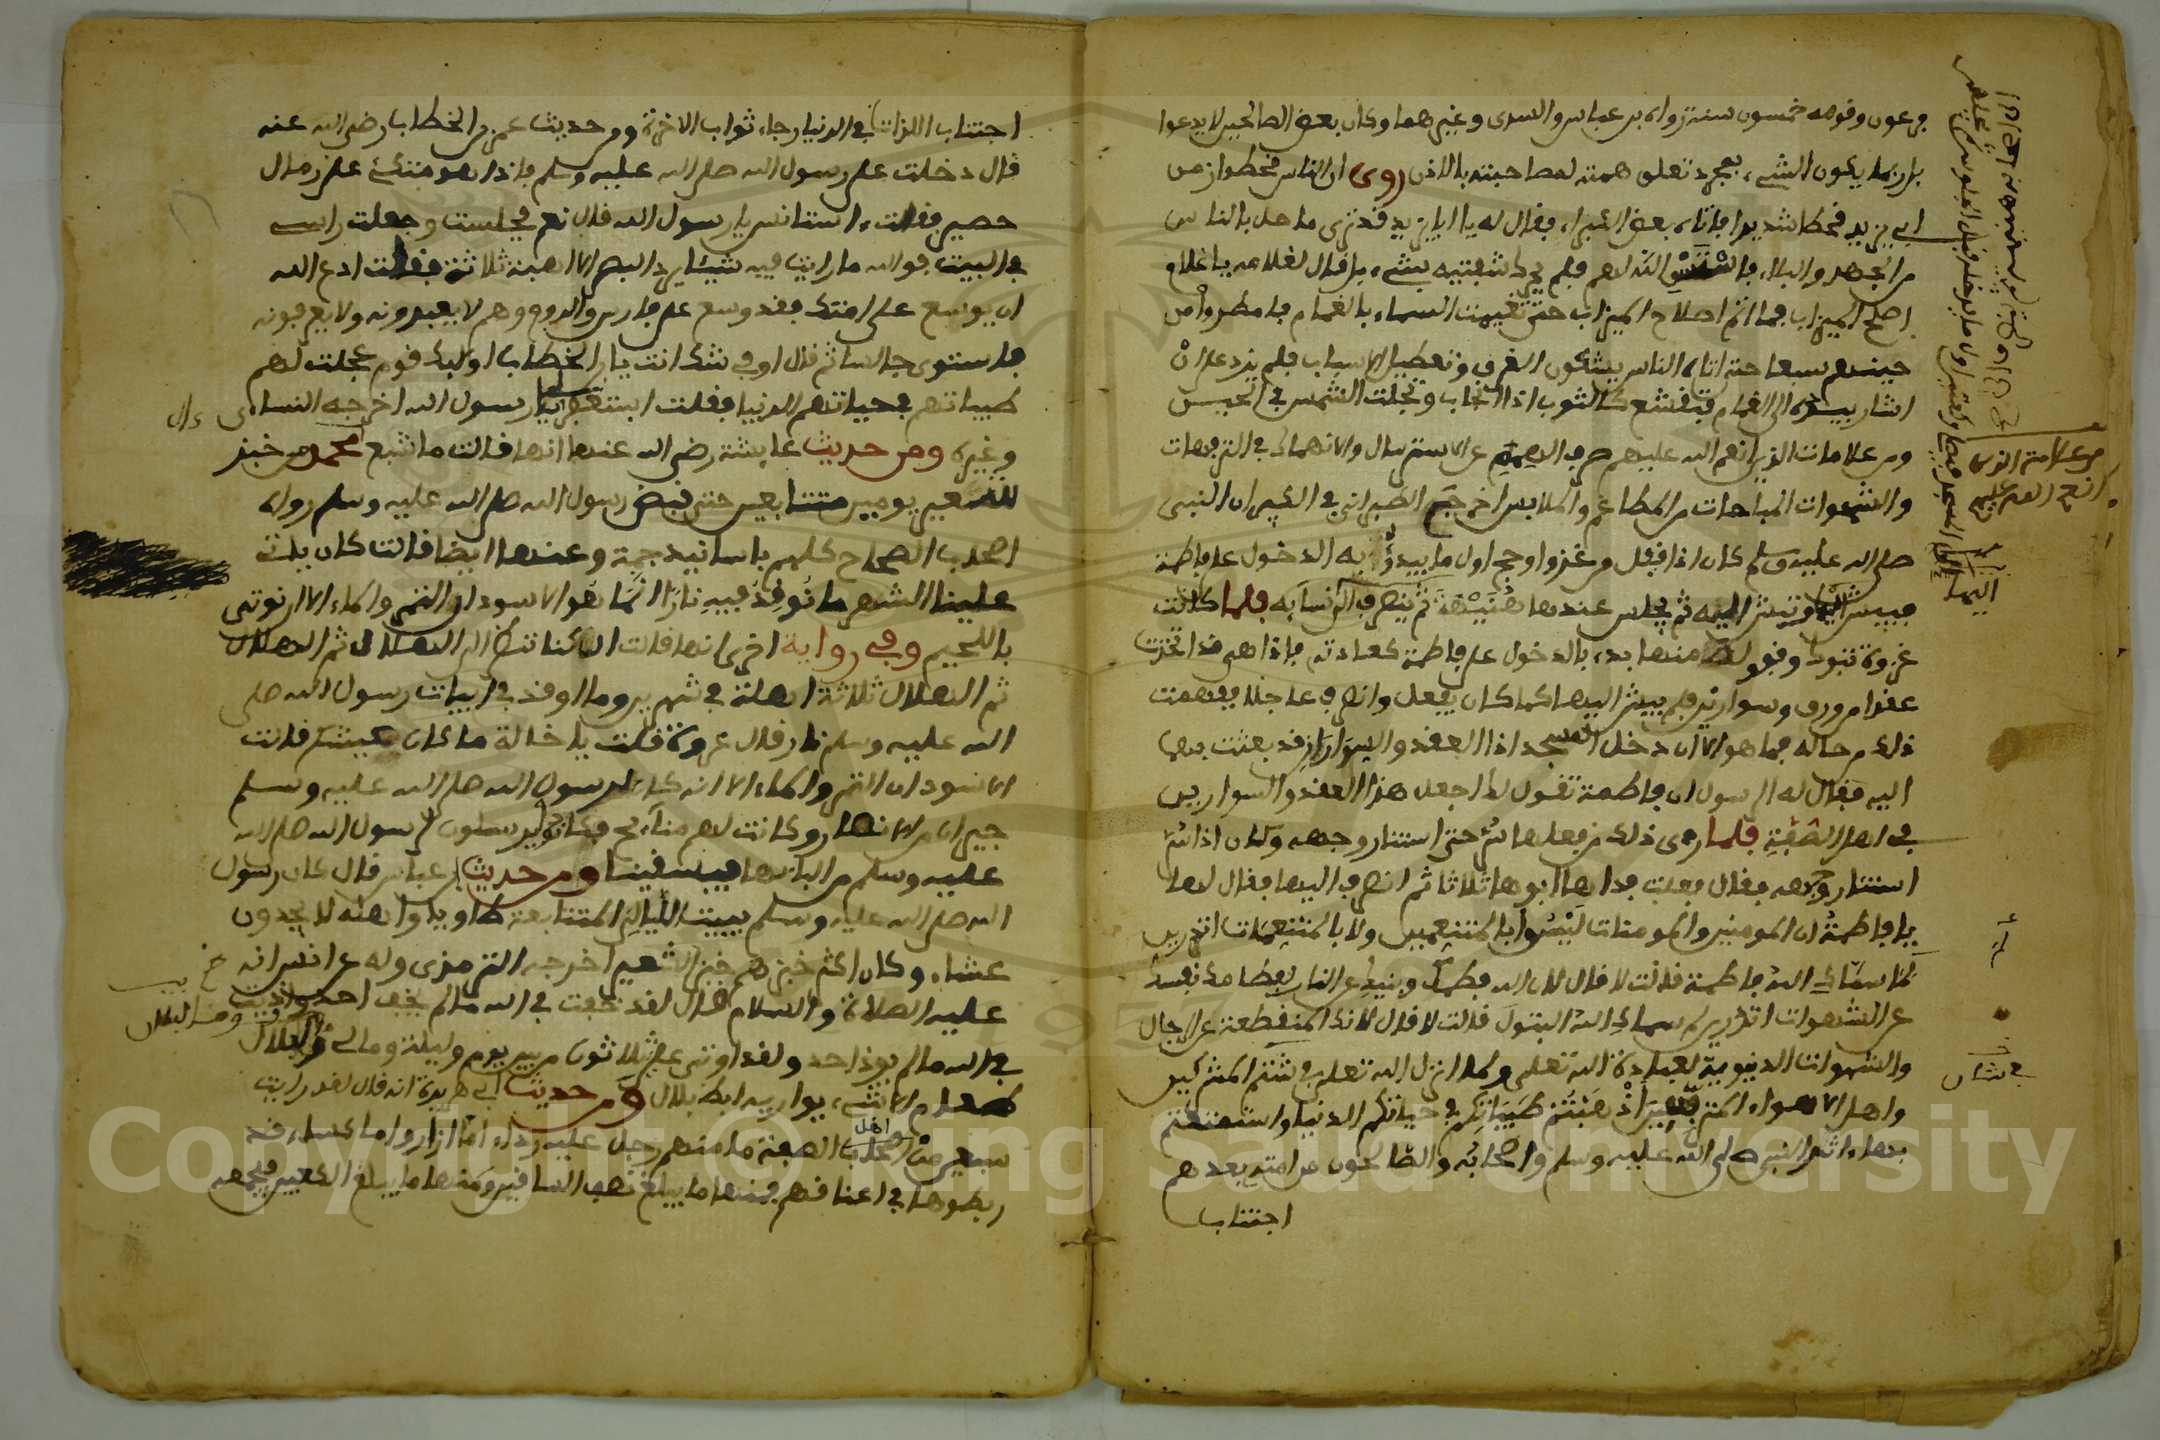 فرعون وقومه خمسون سنة رواه بن عباس والسدى وغيرهما وكان بعض الصالحين لا يدعوا
بل ربما يكون الشىء بمجرد تعلق همته لمصاحبته بالاذن روى ان الناس قحطوا زمن
ابي يزيد قحطا شديدا فاتاه بعض الكبراء فقال له يا ابا يزيد قد ترى ما حل بالناس
من الجهد والبلاء فاستسق الله لهم فلم يجد شفتيه بشىء بل قال لغلامه يا غلام
اصلح الميزاب فما اتم اصلاح الميزاب حتى تغيمت السماء بالغمام فامطروا من
حينهم سبعا حتى اتاه الناس يشكون الغرق وتعطيل الاسباب فلم يزد على ان
اشار بيده الى الغمام فتقشع كالثوب اذا انجاب وتجلت الشمس في الحين
ومن علامات الذين انعم الله عليهم صرف الهمم عن الاسترسال والانهماك في الترفهات
والشهوات المباحات من المطاعم والملابس اخرج الطبراني في الكبير ان النبي
صلى الله عليه وسلم كان اذا قفل من غزو او حج اول ما يبدؤ به الدخول على فاطمة
فيبش اليها وتبش اليه ثم يجلس عندها هنيهة ثم ينصرف الى نسائه فلما كانت
غزوة تبوك وقفوله منها بدء بالدخول على فاطمة كعادته فاذا هي قد اتخذت
عقدا من ورق وسوارين فلم يبش اليها كما كان يفعل وانصرف عاجلا ففهمت
ذلك من حاله فما هو الا ان دخل المسجد اذا العقد والسواران قد بعثت بهما
اليه فقال له الرسول ان فاطمة تقول لك اجعل هذا العقد والسوارين
في اهل الصفة فلما رءى ذلك من فعلها سر حتى استنار وجهه وكان اذا سر
استنار وجهه فقال فعلت فداها ابوها ثلاثا ثم انصرف اليها فقال لها
يا فاطمة ان المومنين والمومنات ليسوا بالمتنعمين ولا بالمتنعمات اتدرين
لم سماك الله فاطمة قالت لا قال لان الله فطمك وبنيك عن النار بفطامك نفسك
عن الشهوات اتدرين لم سماك الله البتول قالت لا قال لانك المنقطعة عن الرجال
والشهوات الدنيوية لعبادة الله تعلى ولما انزل الله تعلى في شتم المشركين
واهل الاهواء المتكبرين اذهبتم طيباتكم في حياتكم الدنيا واستمتعتم
بها اثر النبي صلى الله عليه وسلم واصحابه والصالحون من امته بعدهم
اجتناب
من علامة الذين
انعم الله عليهم
اجتناب اللذات في الدنيا رجاء ثواب الاخرة ومن حديث عمر بن الخطاب رضي الله عنه
قال دخلت على رسول الله صلى الله عليه وسلم فاذا هو متكئ على رمال
حصير فقلت ءاستانس يا رسول الله قال نعم فجلست وجعلت راسي
في البيت فوالله ما رايت فيه شيئا يرد البصر الا اهبة ثلاثة فقلت ادع الله
ان يوسع على امتك فقد وسع على فارس والروم وهم لا يعبدونه ولا يعرفونه
فاستوى جالسا ثم قال اوفي شك انت يا ابن الخطاب اولئك قوم عجلت لهم
طيباتهم في حياتهم الدنيا فقلت استغفر لي يا رسول الله اخرجه النساءى
وغيره ومن حديث عايشة رضي الله عنها انها قالت ما شبع ءال محمد من خبز
الشعير يومين متتابعين حتى قبض رسول الله صلى الله عليه وسلم رواه
اصحاب الصحاح كلهم باسانيد جمة وعنها ايضا قالت كان ياتي
علينا الشهر ما نوقد فيه نارا انما هو الاسودان التمر والماء الا ان نوتى
باللحيم وفي رواية اخرى انها قالت ان كنا ننظر الى الهلال ثم الهلال
ثم الهلال ثلاثة اهلة في شهرين وما اوقد في ابيات رسول الله صلى
الله عليه وسلم نار قال عروة قلت يا خالة ما كان يعيشكم قالت
الاسودان التمر والماء الا انه كان لرسول الله صلى الله عليه وسلم
جيران من الانصار وكانت لهم منائح فكانوا يرسلون لرسول الله صلى الله
عليه وسلم من البانها فيسقينا ومن حديث ابن عباس قال كان رسول
الله صلى الله عليه وسلم يبيت الليالي المتتابعة طاويا واهله لا يجدون
عشاء وكان اكثر خبزهم خبز الشعير اخرجه الترمذى وله عن انس انه
عليه الصلاة والسلام قال لقد خفت في الله ما لم يخف احد واوذيت
في الله ما لم يوذ احد ولقد اوتى على ثلاثون من بين يوم وليلة ومالى ولبلال
طعام الا شىء يواريه ابط بلال ومن حديث ابي هريرة انه قال لقد رايت
سبعين من اهل الصفة ما منهم رجل عليه رداء اما ازار واما كساء قد
ربطوها في اعناقهم فمنها ما يبلغ نصف الساقين ومنها ما يبلغ الكعبين فيجمعه